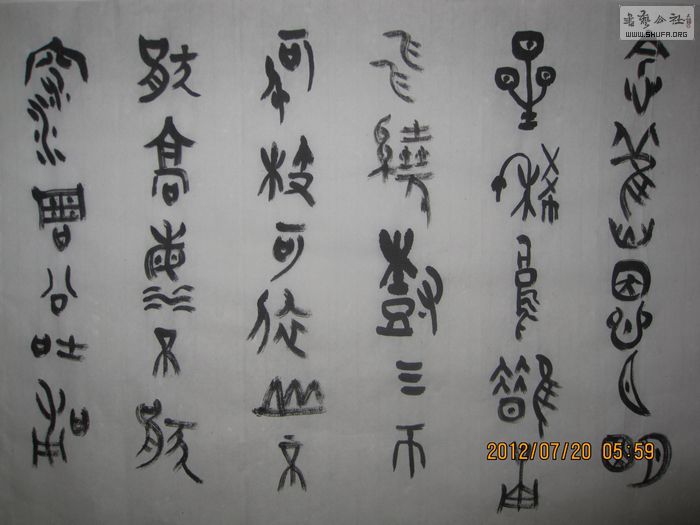 念舊恩月明
星稀烏鵲南
飛繞樹三匝
何枝可依山不
厭高海不厭
深周公吐哺
書藝公社
WWW.SHUFA.ORG
2012/07/20 05:59